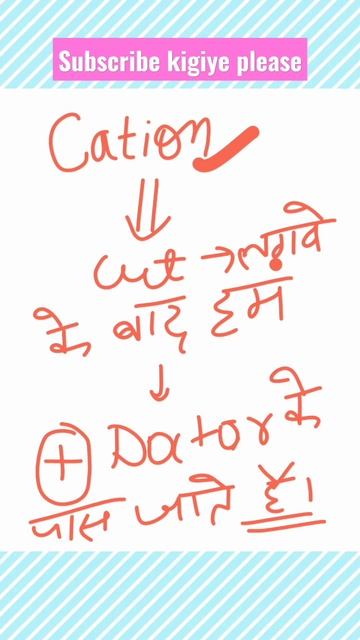 Subscribe kigiye please
Cation
cut → लगाने
के बाद हम
Doctor के
+
पास जाते हैं।